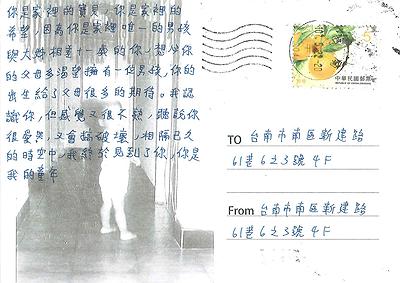 你是家裡的寶貝，你是家裡的
希望，因為你是家裡唯一的男孩
與大姊相差十一歲的你，想必你
的父母多渴望擁有一個男孩，你的
出生給了父母很多的期待。我認
識你，但感覺又很不熟，聽說你
很愛哭，又會搞破壞，相隔已久
的時空中，我終於見到了你，你是
我的童年
5
中華民國郵票
REPUBLIC OF CHINA (TAIWAN)
TO 台南市南區新建路
61巷6之3號4F
From 台南市南區新建路
61巷6之3號4F